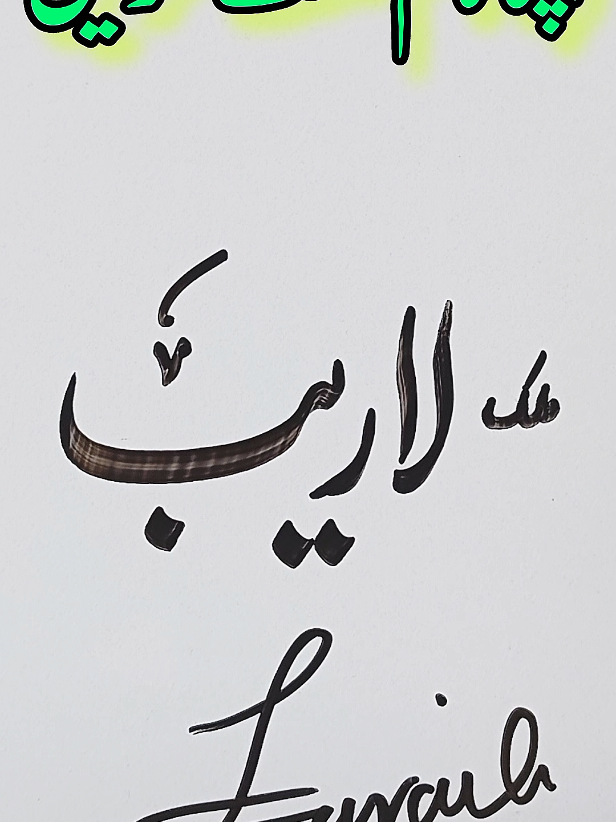 ملک لاریب
Laraib